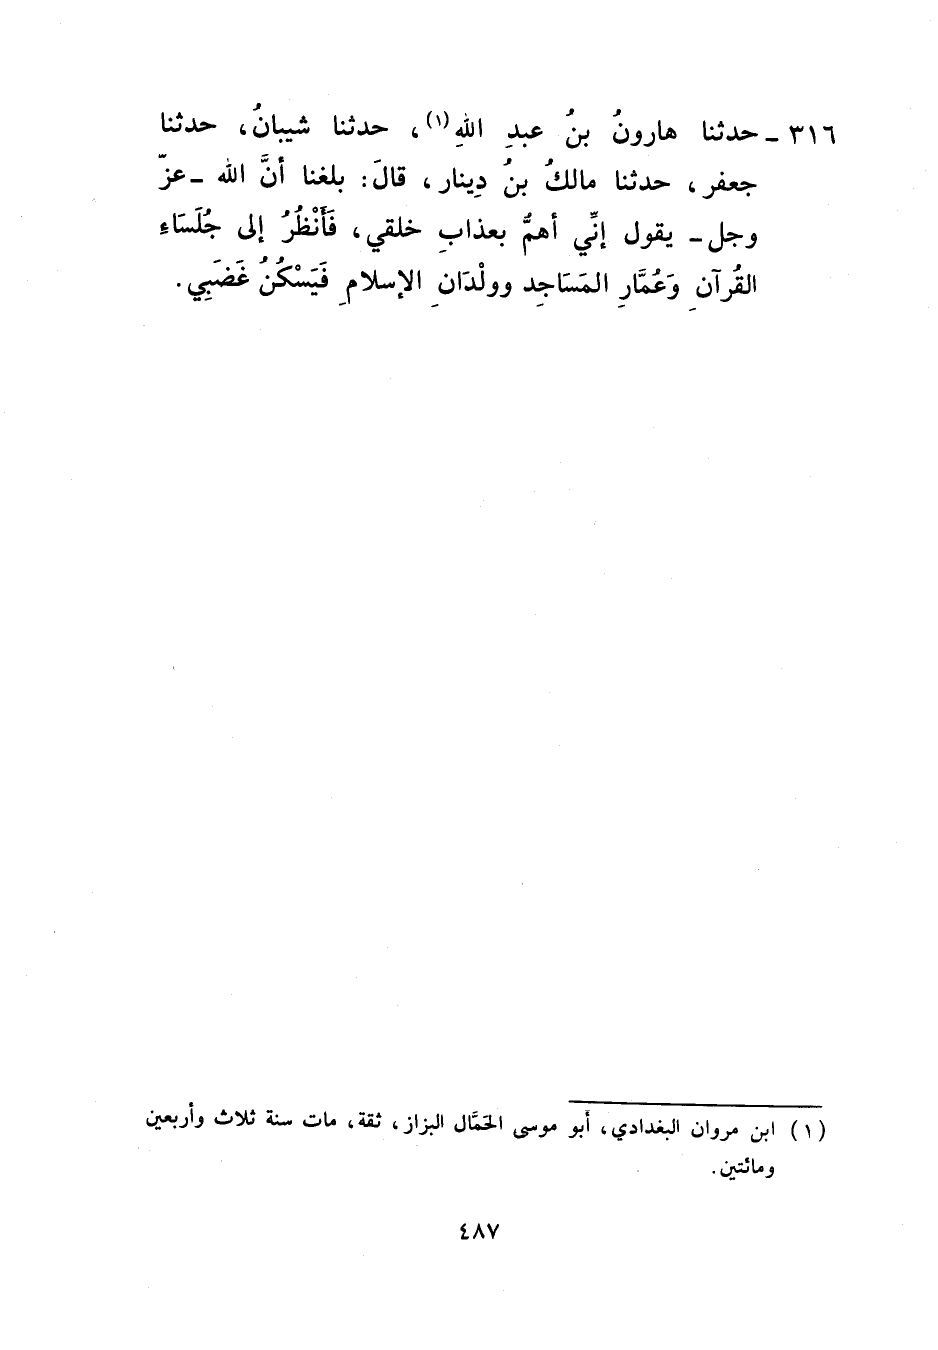 ٣١٦ ـ حدثنا هارونُ بنُ عبدِ اللهِ(١)، حدثنا شيبانُ، حدثنا
جعفر، حدثنا مالكُ بنُ دِينار، قالَ: بلغنا أنَّ الله ـ عزّ
وجل ـ يقول إنِّي أهمُّ بعذابِ خلقي، فَأَنْظُرُ إلى جُلَسَاءِ
القُرآنِ وَعُمَّارِ المَسَاجِدِ وولْدَانِ الإسلامِ فَيَسْكُنُ غَضَبِي.
(١) ابن مروان البغدادي، أبو موسى الحَمَّال البزاز، ثقة، مات سنة ثلاث وأربعين
ومائتين.
٤٨٧